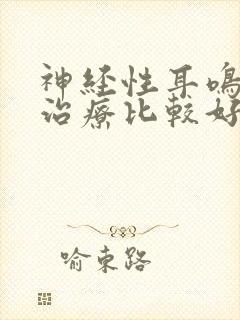 神経性耳鳴
治療比較好
喻東路